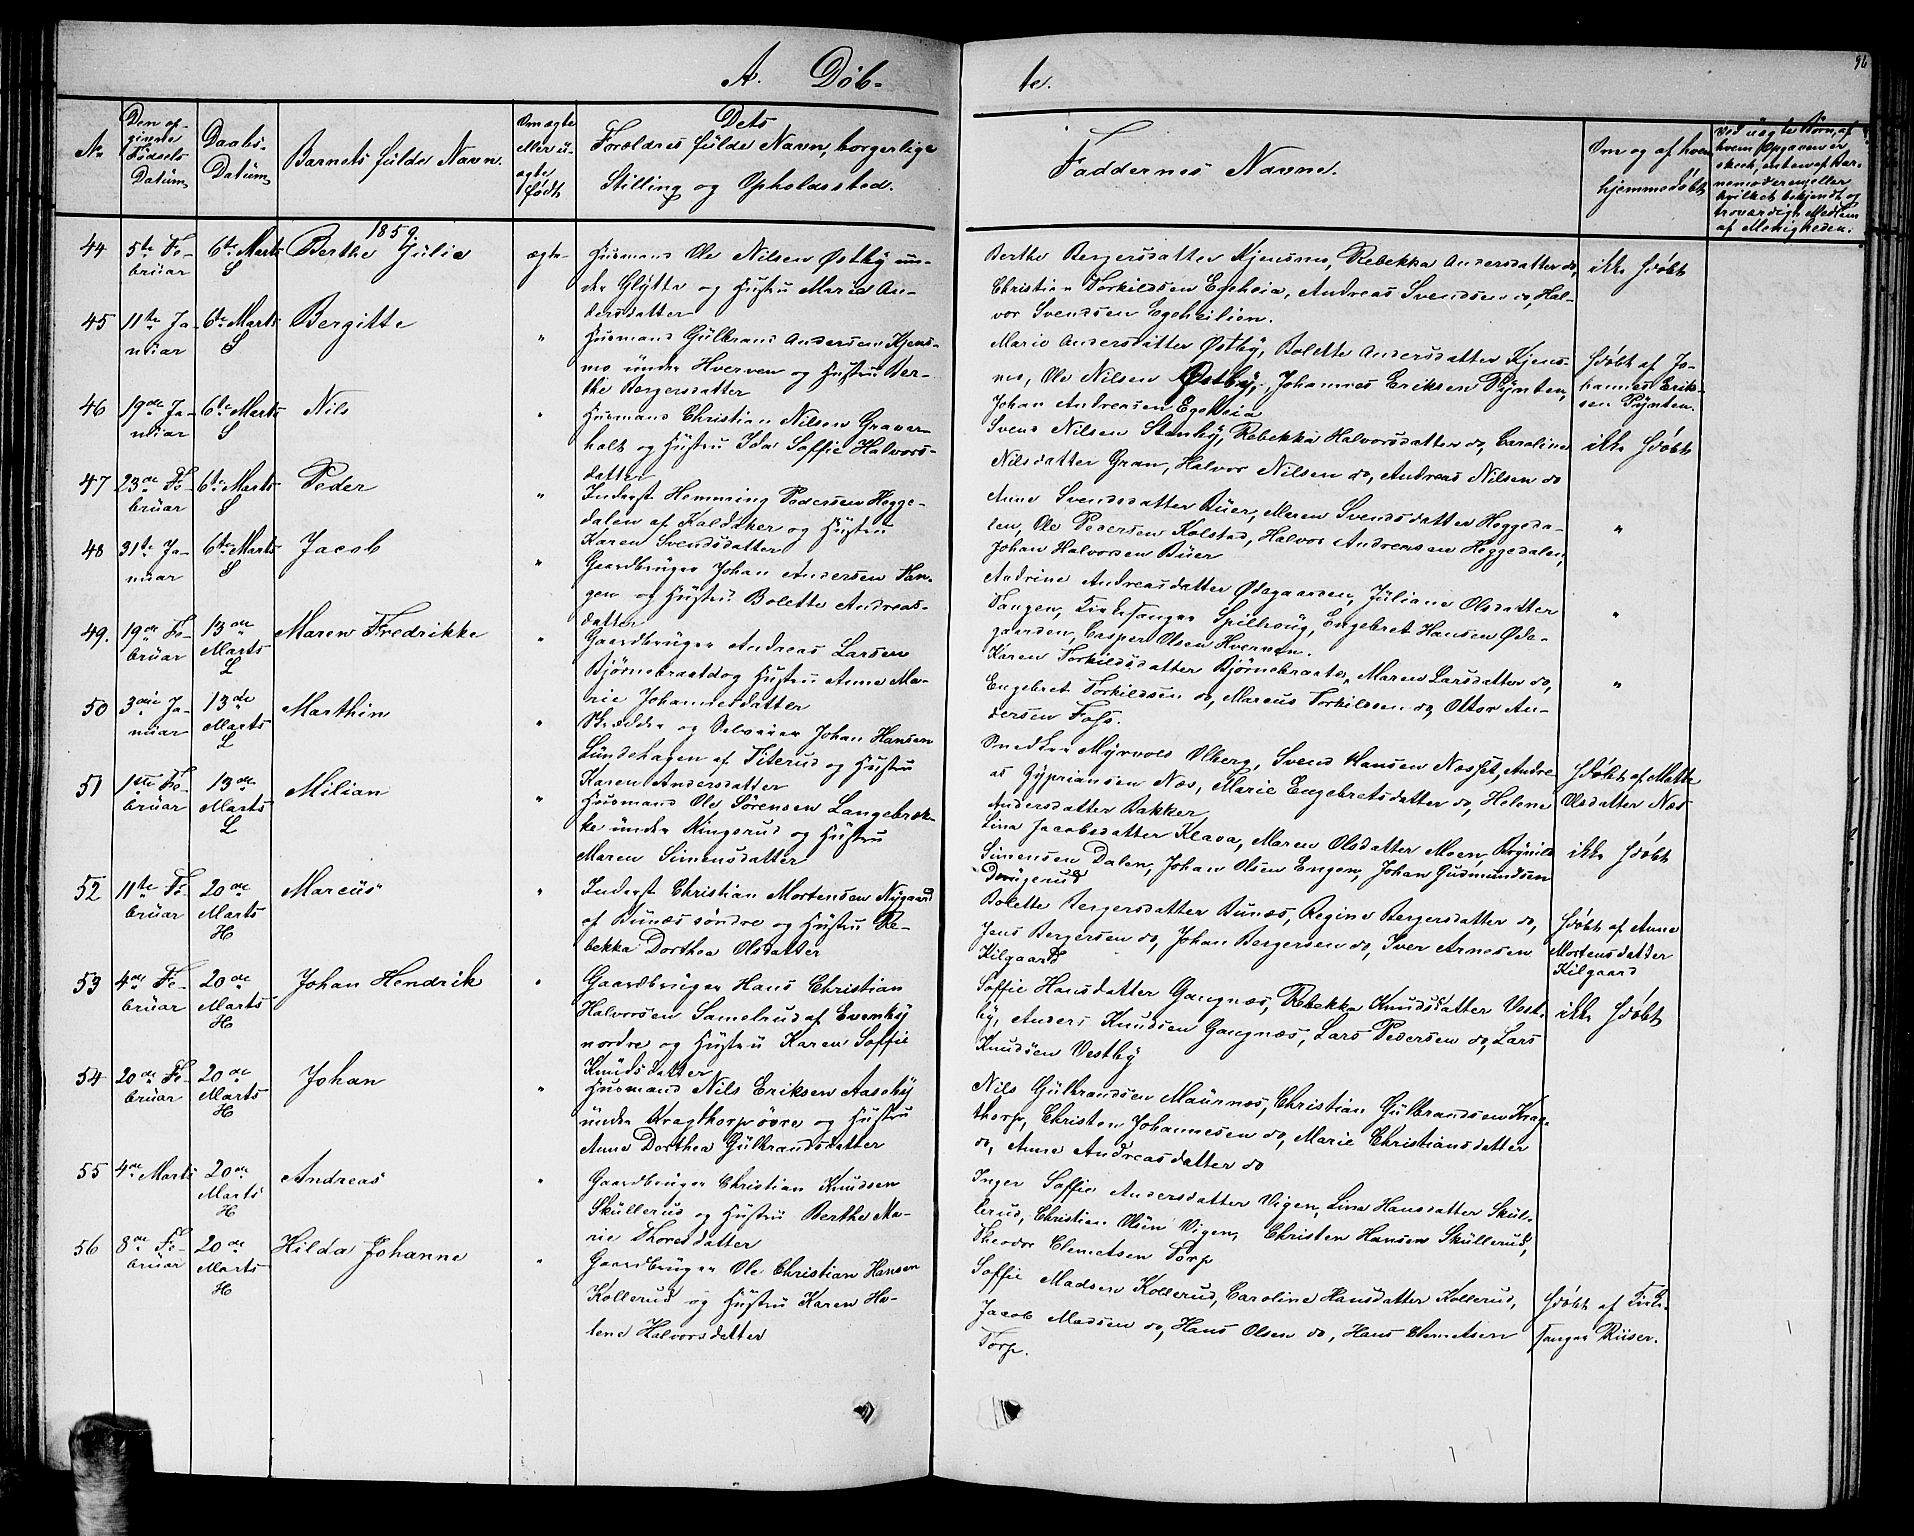 A. Døb-
te.
96
No
Den op-
givne
Fødsels
Datüm
Daabs-
Datüm
Barnets fulde Navn.
Om ægte
eller u-
ægte
født
Dets
Forældres fulde Navn, borgerlige
Stilling og Opholdssted.
Faddernes Navne.
Om og af hvem
hjemmedøbt
Ved uægte Børn, af
hvem Opgaven er
skeet, enten af Bar-
nemoderen eller
hvilket bekjendt og
troværdigt Medlem
af Menigheden.
1859.
44 5te Fe-
brüar
6te Marts
S
Berthe Jülie
ægte
Husmand Ole Nilsen Østby un-
der Glÿtte og Hustru Maria An-
dersdatter
Berthe Bergersdatter Kjensmo, Rebekka Andersdatter do,
Christian Torkildsen Egeheia, Andreas Svendsen do, Hal-
vor Svendsen Egeheilien.
ikke hdøbt
45 11te Ja-
nüar
6te Marts
S
Bergitte
"
Husmand Gülbrand Andersen Kjens-
mo ünder Hverven og Hustru Ber-
the Bergersdatter
Marie Andersdatter Østby, Bolette Andersdatter Kjens-
mo, Ole Nilsen Østby, Johannes Eriksen Pÿnten,
Johan Andreasen Egeheia
hdøbt af Jo-
hannes Erik-
sen Pÿnten.
46 19de Ja-
nüar
6te Marts
S
Nils
"
Husmand Christian Nilsen Graver-
holt og Hustru Ida Soffie Halvors-
datter
Svend Nilsen Stenby, Rebekka Halvorsdatter do, Caroline
Nilsdatter Gran, Halvor Nilsen do, Andreas Nilsen do
ikke hdøbt
47 23de Fe-
brüar
6te Marts
S
Peder
"
Inderst Hemming Pedersen Hegge-
dalen af Kaldaker og Hüstru
Karen Svendsdatter
Anne Svendsdatter Büer, Maren Svendsdatter Heggeda-
len, Ole Pedersen Kolstad, Halvor Andreasen Heggedalen,
Johan Halvorsen Büer
"
48 31te Ja-
nüar
6te Marts
S
Jacob
"
Gaardbruger Johan Andersen Tan-
gen og Hüstru Bolette Andreas-
datter
Andrine Andreasdatter Ødegaarden, Jüliane Olsdatter
Tangen, Kirkesanger Spilhoüg, Engebret Hansen Øde-
gaarden, Casper Olsen Hverven.
"
49. 19de Fe-
brüar
13de
Marts
L
Maren Fredrikke
"
Gaardbruger Andreas Larsen
Bjørnebraat og Hustru Anne Ma-
rie Johannesdatter
Karen Torkildsdatter Bjørnebraate, Maren Larsdatter do,
Engebret Torkildsen do, Marcus Torkildsen do, Ottor An-
dersen Foss.
"
50 3die Ja-
nüar
13de
Marts
L
Marthin
"
Skrædder og Selveier Johan Hansen
Lündehagen af Titerud og Hustru
Karen Andersdatter
Snedker Myrvold Olberg, Svend Hansen Næsset, Andre-
as Gypriansen Næs, Marie Engebretsdatter do, Helene
Andersdatter Bakker
hdøbt af Mathe
Olsdatter Næs
51 1ste Fe-
brüar
13de
Marts
L
Milian
"
Husmand Ole Sørensen Langebræk-
ke ünder Ringsrud og Hüstru
Maren Simensdatter
Lina Jacobsdatter Klava, Maren Olsdatter Moen, Brynild
Simensen Dalen, Johan Olsen Engen, Johan Gudmundsen
ikke hdøbt
52 11te Fe-
brüar
20de
Marts
H
Marcüs
"
Inderst Christian Mortensen Nygaard
af Bunæs søndre og Hüstru Re-
bekka Dorthea Olsdatter
Bolette Bergersdatter Bunæs, Regine Bergersdatter do,
Jens Bergersen do, Johan Bergersen do, Iver Arnesen
Kilgaard
hdøbt af Anne
Mortensdatter
Kilgaard
53 4de Fe-
brüar
20de
Marts
H
Johan Hendrik
"
Gaardbruger Hans Christian
Halvorsen Samelrud af Evenby
nordre og Hüstru Karen Soffie
Knüdsdatter
Soffie Hansdatter Gangnæs, Rebekka Knudsdatter Vest-
by, Anders Knudsen Gangnæs, Lars Pedersen do, Lars
Knudsen Vestby
ikke hdøbt
54 20de Fe-
brüar
20de
Marts
H
Johan
"
Husmand Nils Eriksen Aaseby
ünder Kragthorp øvre og Hustru
Anne Dorthea Gülbrandsdatter
Nils Gülbrandsen Maürnæs, Christian Gülbrandsen Krag-
thorp, Christen Johannesen do, Marie Christiansdatter
do, Anne Andreasdatter do
55 4de Marts
20de
Marts
H
Andreas
"
Gaardbruger Christian Knudsen
Sküllerus og Hustru Berthe Ma-
rie Thoresdatter
Inger Soffie Andersdatter Vigen, Lina Hansdatter Skül-
lerud, Christian Olsen Vigen, Christen Hansen Sküllerud,
Theodor Clemetsen Torp
56 8de Fe-
brüar
20de
Marts
H
Hilda Johanne
"
Gaardbruger Ole Christian Hansen
Kollerud og Hüstru Karen He-
lene Halvorsdatter
Soffie Madsen Kollerud, Caroline Hansdatter Kollerud,
Jacob Madsen do, Hans Olsen do, Hans Clemetsen
Torp.
hdøbt af Kirke-
sanger Riiser.